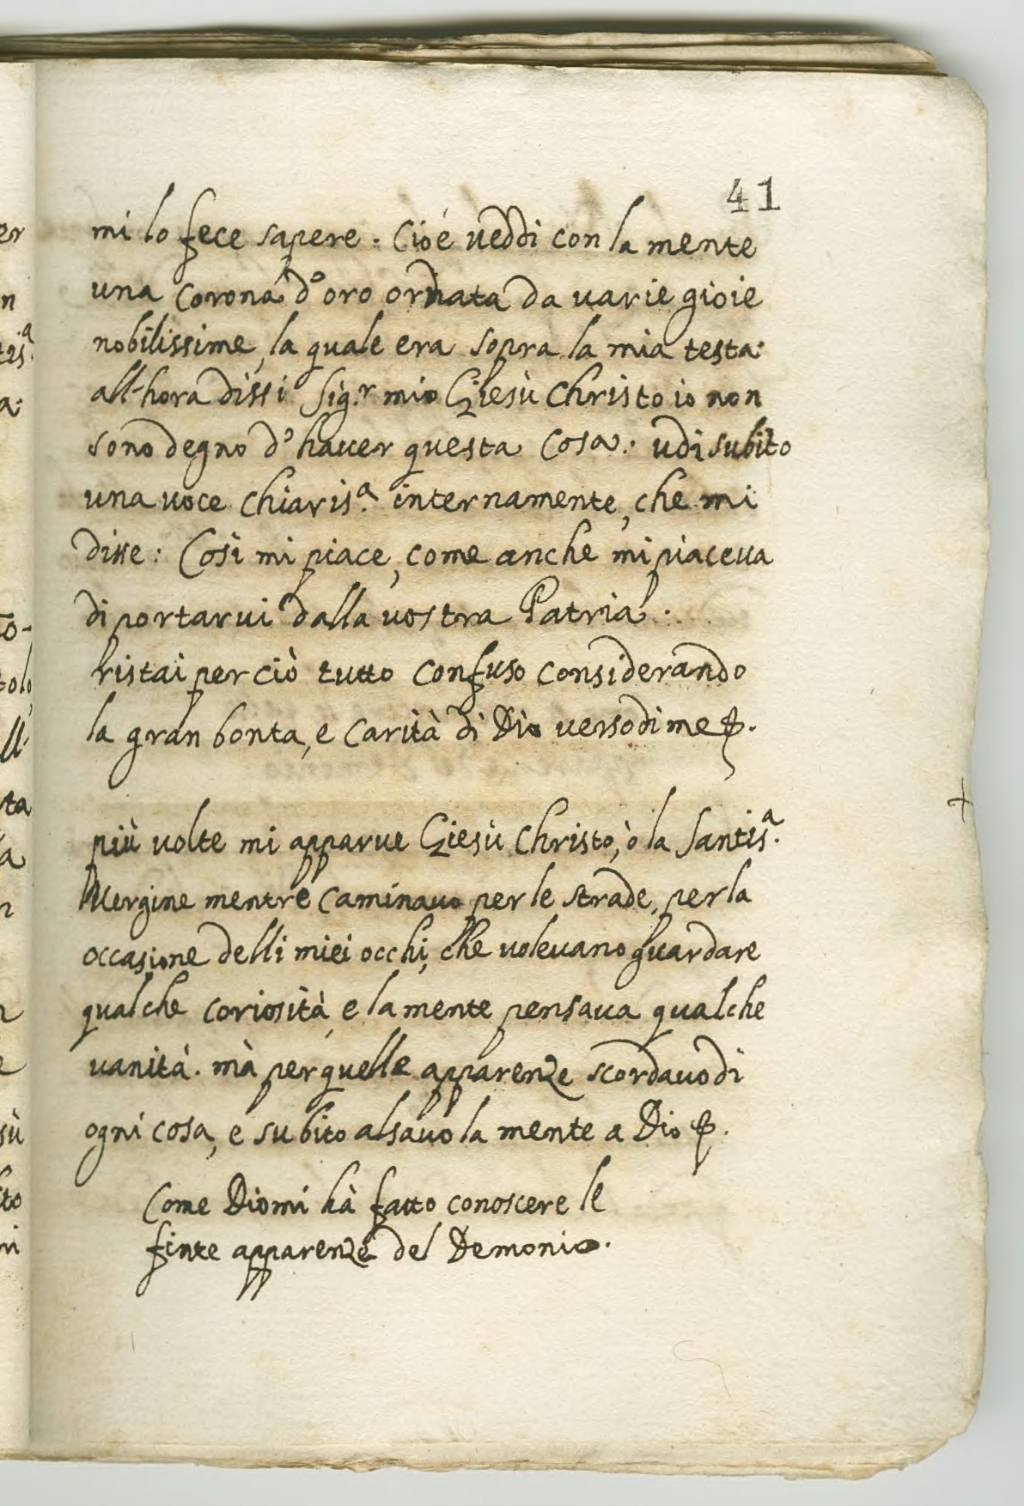 41
mi lo fece sapere: Cioè veddi con la mente
una Corona d'oro ornata da varie gioie
nobilissime, la quale era sopra la mia testa:
all-hora dissi Sig.r mio Giesù Christo io non
sono degno d'haver questa Cosa: udi subito
una voce chiaris.a internamente, che mi
disse: Così mi piace, come anche mi piaceva
di portarvi dalla vostra Patria.
ristai perciò tutto confuso considerando
la gran bonta, e carità di Dio verso di me &.
più volte mi apparve Giesù Christo, ò la Santis.a
Vergine mentre caminavo per le strade, per la
occasione delli miei occhi, che volevano guardare
qualche coriosità, e la mente pensava qualche
vanità. mà per quelle apparenze scordavo di
ogni cosa, e subito alsavo la mente a Dio &.
Come Dio mi hà fatto conoscere le
finte apparenze del Demonio.
er
n
a:
to-
tolo
ll-
ta
a
n
e
sù